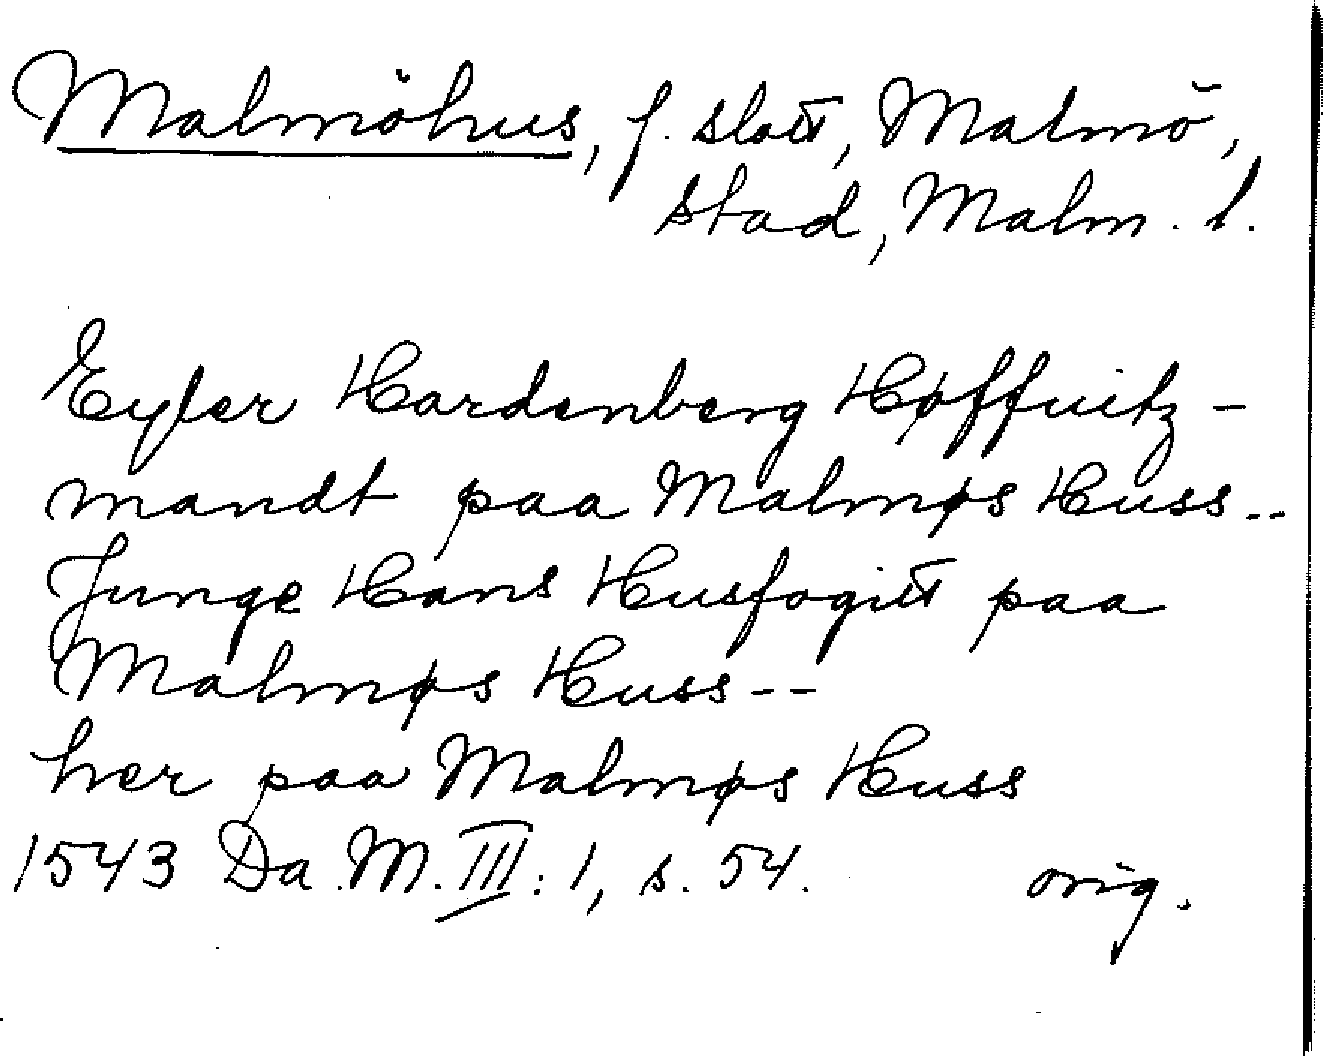 Malmöhus, f. slott, Malmö,
stad, Malm. l.
Eyler Hardenberg Høffuitz-
mandt paa Malmøs Huss--
Junge Hans Husfogitt paa
Malmøs Huss--
her paa Malmøs Huss
1543 Da.M. III: 1, s. 54. orig.